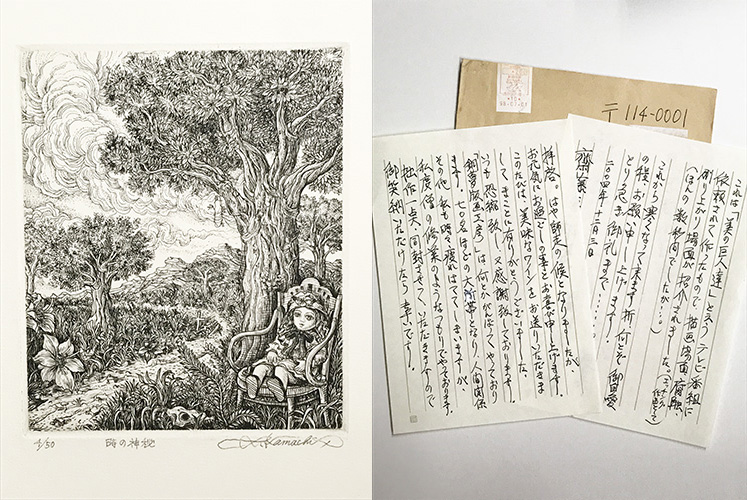 時の神秘
Kamachi
〒114-0001
拝啓。はや師走の候となりましたが
お元気にお過ごしの事とお喜び申し上げます。
このたびは、美味なワインをお送りいただきま
して、まことに有りがとうございました。
いつも恐縮致し、又感謝致しております。
版画工房」は何とかやっており
ます。七〇〇名ほどの大所帯となり、人間関係
その他、私も時々疲れはててしまいますが、
私度僧の修業のようなつもりでやっております。
拙作一点、同封させていただきますので
御笑納いただけたら幸いです。
これは「美の巨人達」と云う テレビ番組に
依頼されて作ったもので 描画場面、腐蝕、
刷り上がり場面が紹介されました。
(ほんの数秒間でしたが…。)
これから寒くなって来ます折、何とぞ御自愛
の程、お祈り申し上げます。
とり急ぎ 御礼まで……。
二〇〇四年 十二月三日